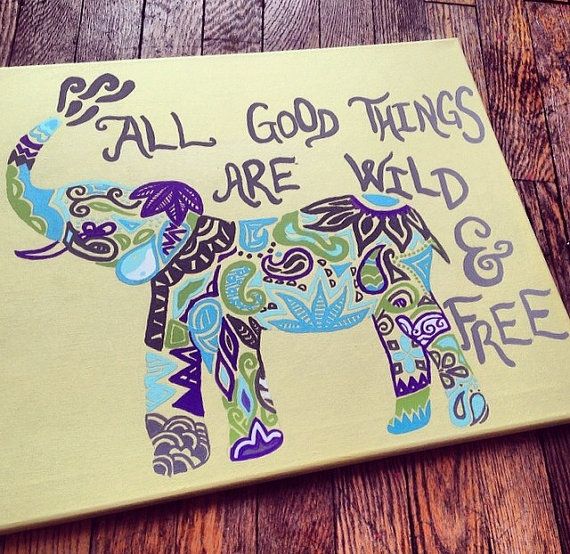 ALL GOOD THINGS
ARE WILD
&
FREE